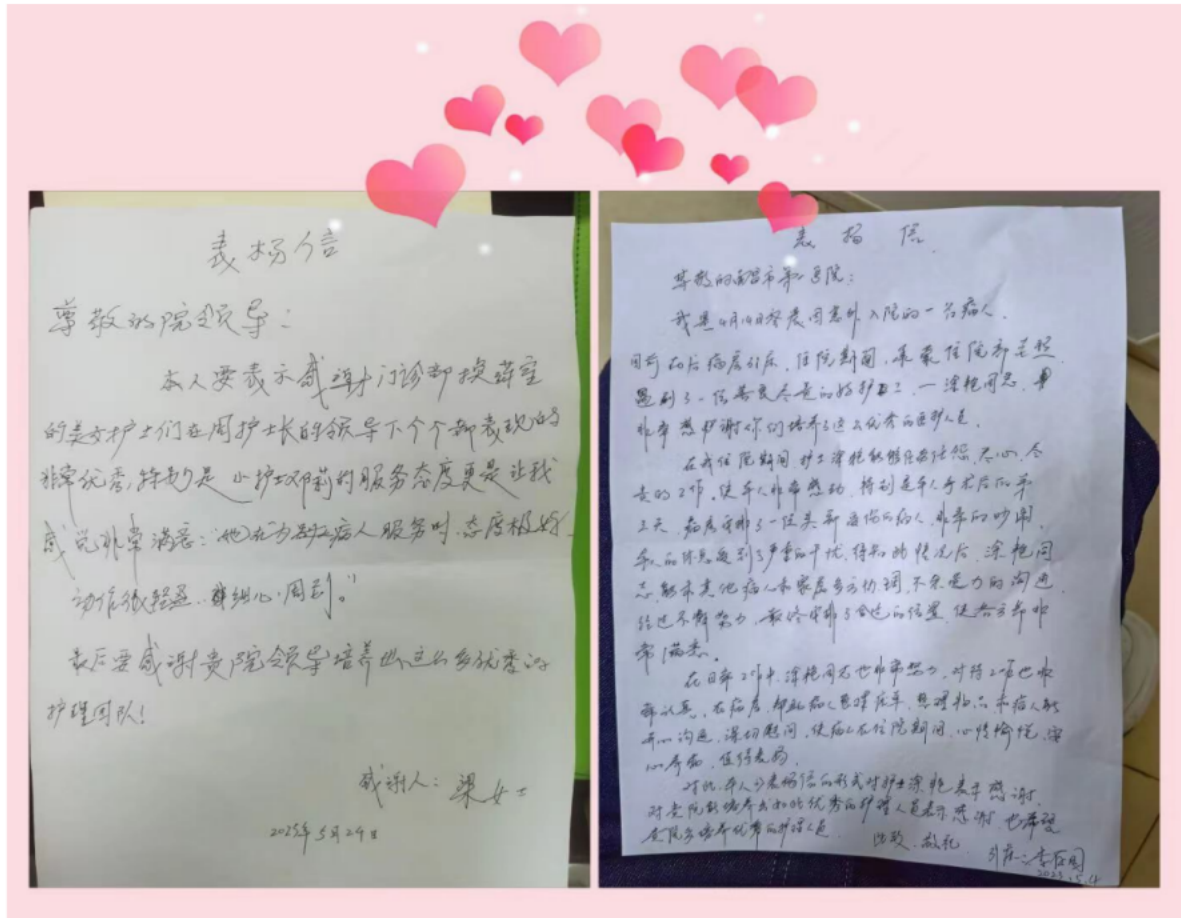 表扬信
尊敬的院领导：
本人要表示感谢门诊部换药室
的美女护士们在周护士长的领导下个个都表现的
非常优秀，特别是小护士邓莉的服务态度更是让我
感觉非常满意：“她在为每位病人服务时，态度极好，
动作很轻盈，细心，周到。”
最后要感谢贵院领导培养出这么多优秀的
护理团队！
感谢人：梁女士
2023年5月24日
表扬信
尊敬的南昌市第一医院：
我是4月14日因意外入院的一名病人，
目前在后病房引床，住院期间，承蒙住院部关照
遇到了一位善良尽责的好护工，一涂艳同志，
非常感谢你们培养了这么优秀的医护人员。
在我住院期间，护士涂艳能任劳任怨，尽心，尽
责的工作，使本人非常感动，特别是本人手术后的第
三天，病房安排了一位头部受伤的病人，非常的吵闹，
本人的休息受到了严重的干扰，得知此情况后，涂艳同
志，能和其他病人和家属多方协调，不余遗力的沟通
经过不懈努力，最终安排了合适的位置，使各方都非
常满意。
在日常工作中，涂艳同志也非常努力，对待工作也非
常认真，在病房，帮助病人整理床单，整理物品和病人能
开心沟通，深切慰问，使病人在住院期间，心情愉悦，安
心养病，值得表扬
对此，本人以表扬信的形式对护士涂艳表示感谢，
对贵院能培养出如此优秀的护理人员表示感谢，也希望
贵院多培养优秀的护理人员。
此致，敬礼
2023.5.4